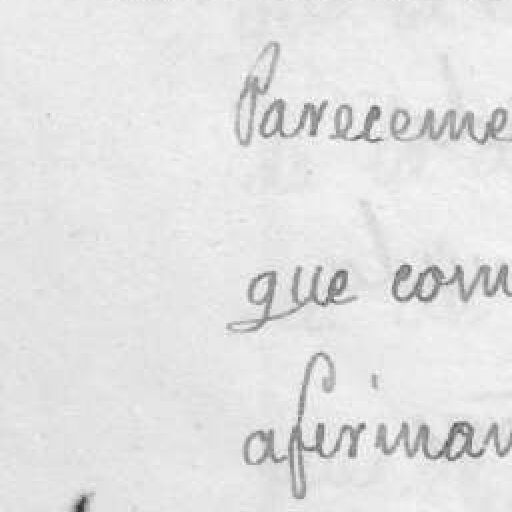 Pareceme
que com
afirman